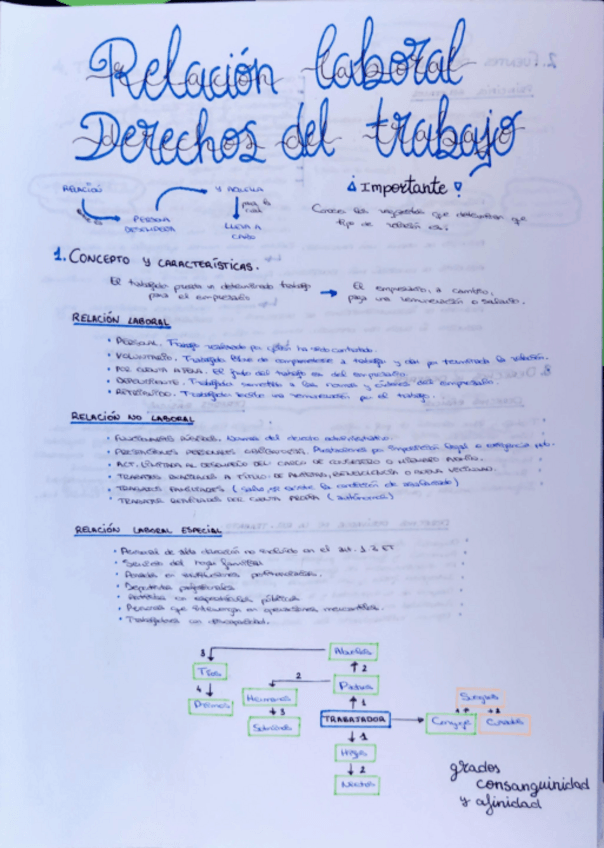 Relación laboral
Derechos del trabajo
RELACIÓN
Y AQUELLA
PERSONA DESEMPEÑA
LLEVA A CABO
¡Importante!
Conocer los requisitos que determinan que
tipo de relación es:
1. CONCEPTO Y CARACTERÍSTICAS.
El trabajador presta un determinado trabajo
para el empresario
El empresario, a cambio,
paga una remuneración o salario.
RELACIÓN LABORAL
• PERSONAL. Trabajo realizado por quién ha sido contratado.
• VOLUNTARIO. Trabajador libre de comprometerse a trabajar y dar por terminada la relación.
• POR CUENTA AJENA. El fruto del trabajo es del empresario.
• DEPENDIENTE. Trabajador sometido a las normas y órdenes del empresario.
• RETRIBUIDO. Trabajador recibe una remuneración por el trabajo.
RELACIÓN NO LABORAL
• FUNCIONARIOS PÚBLICOS. Normas del derecho administrativo.
• PRESTACIONES PERSONALES OBLIGATORIAS.
• ACT. LIMITADA AL DESEMPEÑO DEL CARGO DE CONSEJERO O MIEMBRO
• TRABAJOS REALIZADOS A TÍTULO DE AMISTAD, BENEVOLENCIA O BUENA VECINDAD.
• TRABAJOS FAMILIARES (salvo se demuestre la condición de asalariado)
• TRABAJOS REALIZADOS POR CUENTA PROPIA (autónomos)
RELACIÓN LABORAL ESPECIAL
• Personal de alta dirección no incluido en el art. 1.3 ET
• Servicio del hogar familiar
• Penados en instituciones penitenciarias.
• Deportistas profesionales
• Artistas en espectáculos públicos
• Personas que intervengan en operaciones mercantiles.
• Trabajadores con discapacidad.
3
Abuelos
Tíos
2
2
4
Hermanos
Padres
Suegros
Primos
3
1
Sobrinos
TRABAJADOR
Conyuge
Cuñados
1
Hijos
2
Nietos
grados
consanguinidad
y afinidad